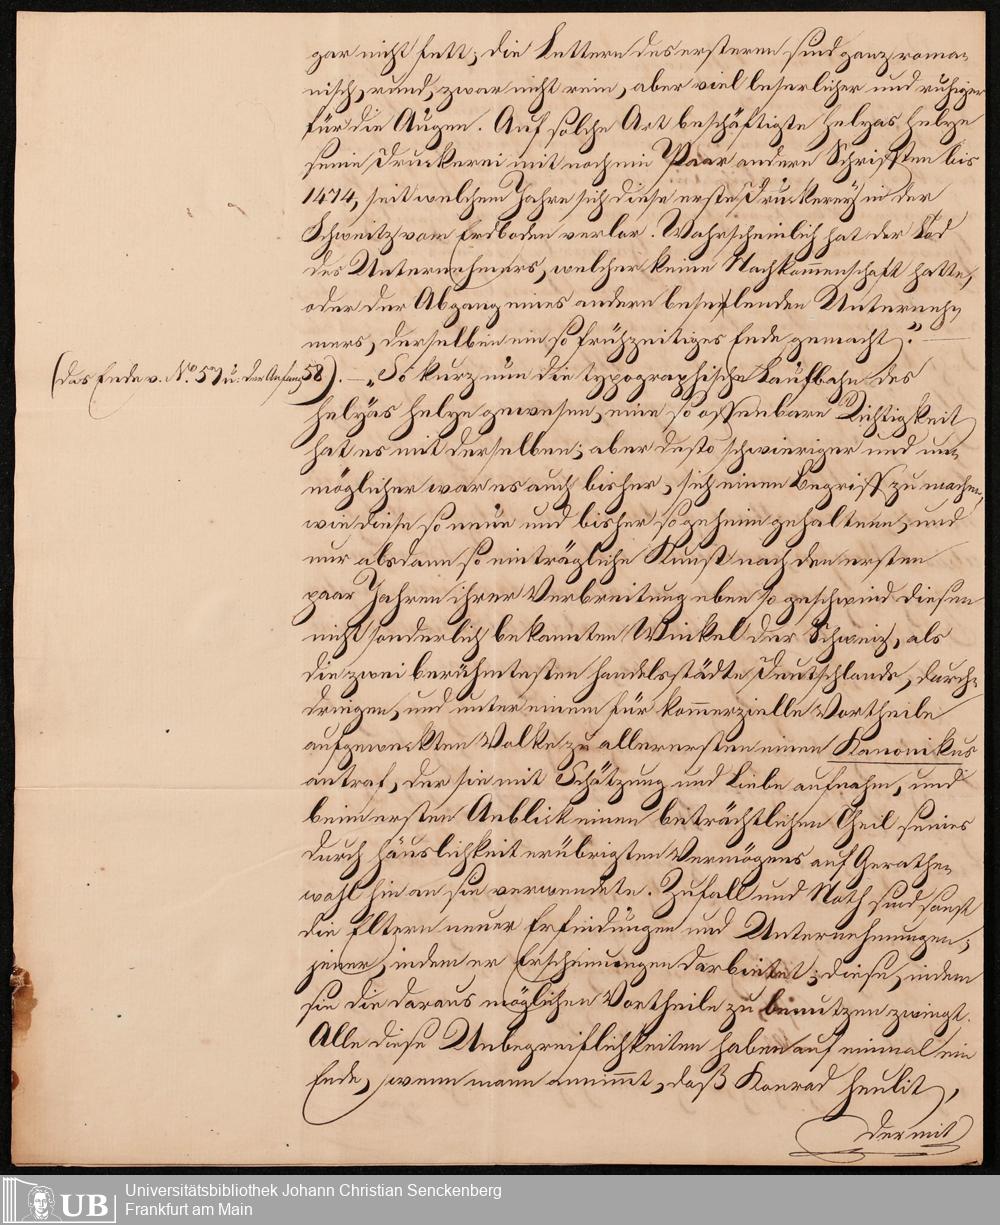 gar nicht fett; die Lettern des ersteren sind ganz roma-
nisch, rund, zwar nicht rein, aber viel leserlicher und ruhiger
für die Augen. Auf solche Art beschäftigte Helyas Helye
seine Druckerei mit noch ein Paar andern Schrifften bis
1474, seit welchem Jahre sich diese erste Druckerey in der
Schweitz vom Erdboden verlor. Wahrscheinlich hat der Tod
des Unternehmers, welcher keine Nachkommenschaft hatte,
oder der Abgang eines andern befehlenden Unterneh-
mers, derselben ein so frühzeitiges Ende gemacht." —
(das Ende v. No. 57 u: der Anfang 58). — „So kurz nun die typographische Laufbahn des
Helyas Helye gewesen, eine so offenbare Richtigkeit
hat es mit derselben; aber desto schwieriger und un-
möglicher war es auch bisher, sich einen Begriff zu machen,
wie diese so neue und bisher so geheim gehaltene, und
nur alsdann so einträgliche Kunst nach den ersten
paar Jahren ihrer Verbreitung eben so geschwind diesen
nicht sonderlich bekannten Winkel der Schweiz, als
die zwei berühmtesten Handelsstädte Deutschlands, durch-
dringen, und unter einem für kommerzielle Vortheile
aufgeweckten Volke zu allerersten einen Kanonikus
antraf, der sie mit Schätzung und Liebe aufnahm, und
beim ersten Anblick einen beträchtlichen Theil seines
durch Häuslichkeit erübrigten Vermögens auf Gerathe-
wohl hin an sie verwendete. Zufall und Noth sind sonst
die Eltern neuer Erfindungen und Unternehmungen;
jener, indem er Erscheinungen darbietet; diese, indem
sie die daraus möglichen Vortheile zu benutzen zwingt.
Alle diese Unbegreiflichkeiten haben auf einmal ein
Ende, wenn mann annimmt, daß Konrad Heulit,
der mit
UB
Universitätsbibliothek Johann Christian Senckenberg
Frankfurt am Main